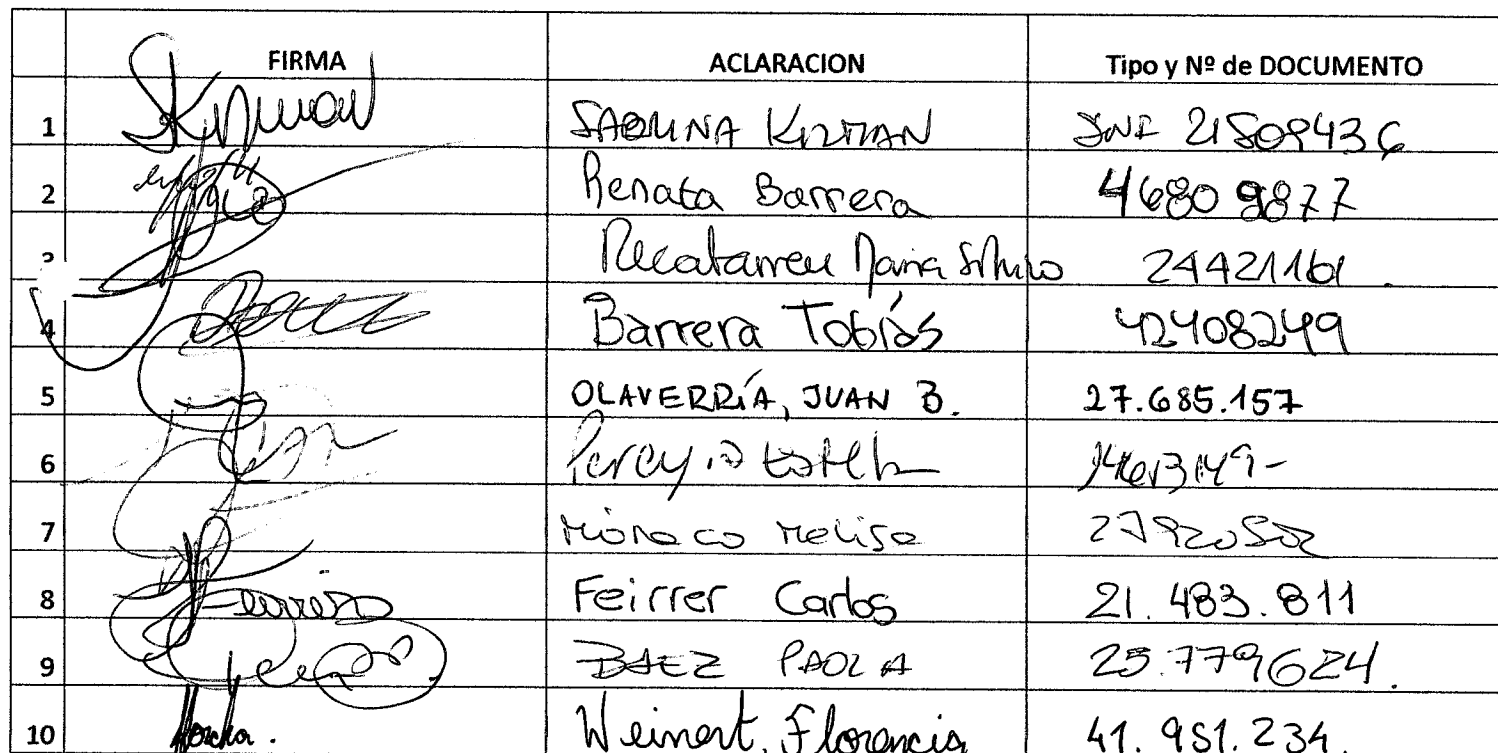 FIRMA ACLARACION Tipo y Nº de DOCUMENTO
1 SABRINA KIZMAN DNI 21509436
2 Renata Barrera 46809877
3 24421161.
4 Barrera Tobías 42408249
5 OLAVERRÍA, JUAN B. 27.685.157
6
7 Mónaco Melisa 27920502
8 Feirrer Carlos 21.483.811
9 BAEZ PAOLA 25.779624.
10 Weinert, Florencia 41.951.234.